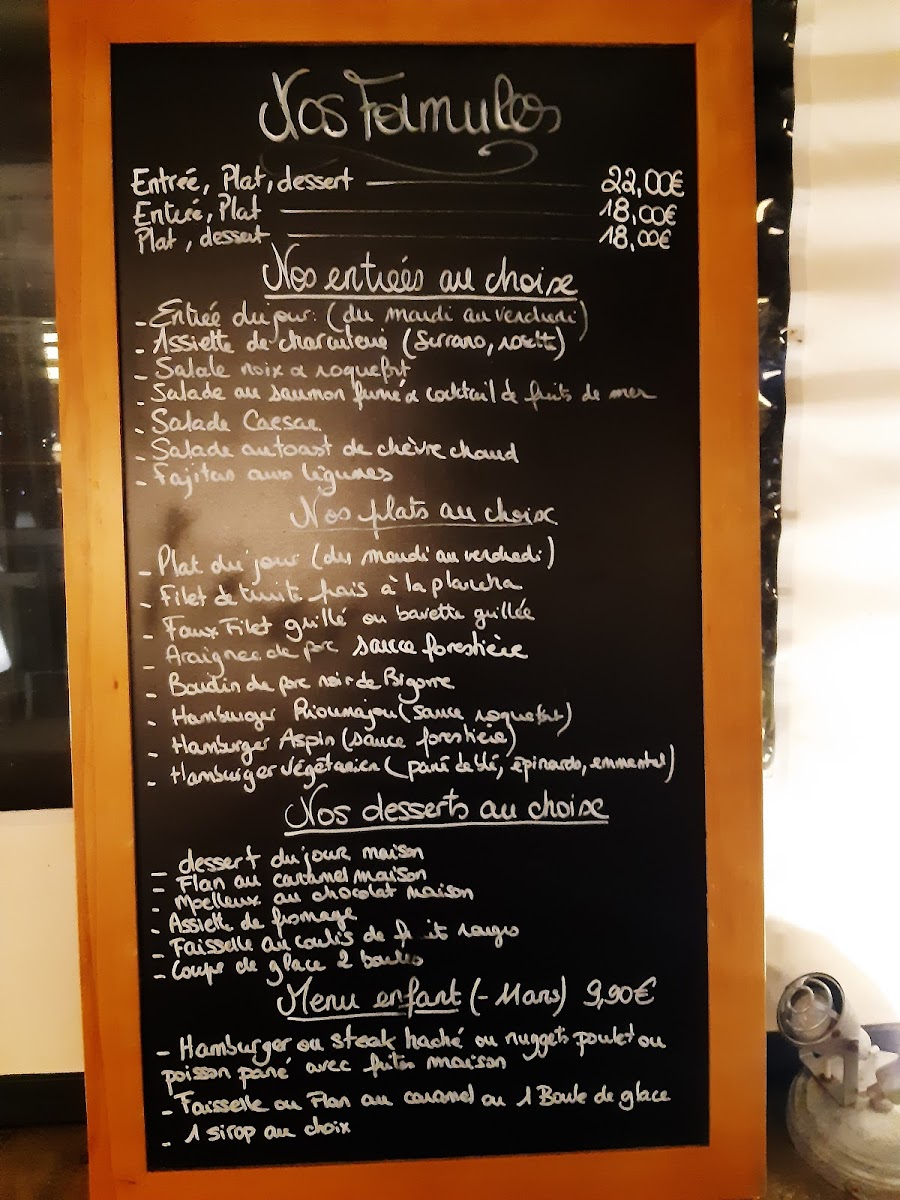 Nos Formules
Entrée, Plat, dessert 22,00€
Entrée, Plat 18,00€
Plat, dessert 18,00€
Nos entrées au choix
- Entrée du jour: (du mardi au vendredi)
- Assiette de charcuterie (Serrano, rosette)
- Salade noix & roquefort
- Salade au saumon fumé & cocktail de fruits de mer
- Salade Caesar
- Salade au toast de chèvre chaud
- Fajitas aux légumes
Nos plats au choix
- Plat du jour (du mardi au vendredi)
- Filet de truite frais à la plancha
- Faux Filet grillé ou bavette grillée
- Araignée de porc sauce forestière
- Boudin de porc noir de Bigorre
- Hamburger Rioumajou (sauce roquefort)
- Hamburger Aspin (sauce forestière)
- Hamburger végétarien (pané de blé, épinards, emmental)
Nos desserts au choix
- dessert du jour maison
- Flan au caramel maison
- Moelleux au chocolat maison
- Assiette de fromage
- Faisselle au coulis de f it rouges
- Coupe de glace 2 boules
Menu enfant (- 11ans) 9,90€
- Hamburger ou steak haché ou nuggets poulet ou
poisson pané avec frites maison
- Faisselle ou Flan au caramel ou 1 Boule de glace
- 1 sirop au choix